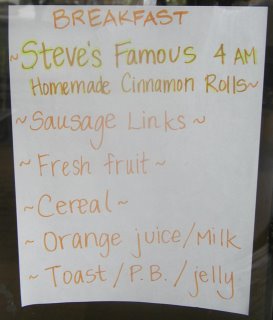 BREAKFAST
~Steve's Famous 4 AM
Homemade Cinnamon Rolls~
~Sausage Links~
~Fresh fruit~
~Cereal~
~Orange juice/Milk
~Toast/P.B./jelly